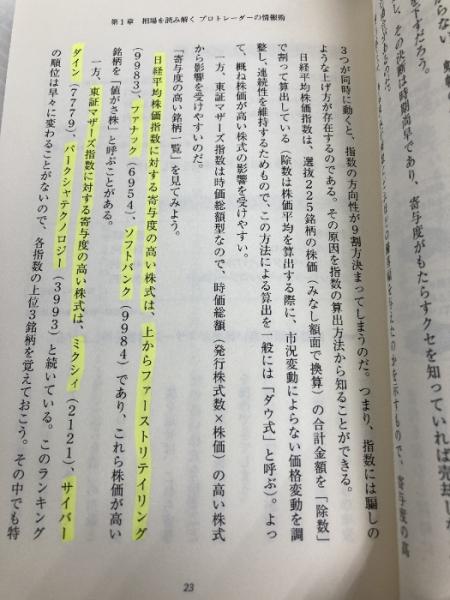 し、その決断は時期尚早であり、
寄与度がもたらすクセを知っていれば売却し
を示すもので、寄与度の高
第1章 相場を読み解く プロトレーダーの情報術
3つが同時に動くと、指数の方向性が9割方決まってしまうのだ。つまり、指数には騙しの
ような上げ方が存在するのである。その原因を指数の算出方法から知ることができる。
日経平均株価指数は、選抜225銘柄の株価（みなし額面で換算）の合計金額を「除数」
で割って算出している（除数は株価平均を算出する際に、市況変動によらない価格変動を調
整し、連続性を維持するためもので、この方法による算出を一般には「ダウ式」と呼ぶ）。よっ
て、概ね株価が高い株式の影響を受けやすい。
一方、東証マザーズ指数は時価総額型なので、時価総額（発行株式数×株価）の高い株式
の影響を受けやすいのだ。
「寄与度の高い銘柄一覧」を見てみよう。
日経平均株価指数に対する寄与度の高い株式は、上からファーストリテイリング
（9983）、ファナック（6954）、ソフトバンク（9984）であり、これら株価が高い
銘柄を「値がさ株」と呼ぶことがある。
一方、東証マザーズ指数に対する寄与度の高い株式は、ミクシィ（2121）、サイバー
ダイン（7779）、パークシャテクノロジー（3993）と続いている。このランキング
の順位は早々に変わることがないので、各指数の上位3銘柄を覚えておこう。その中でも特
23